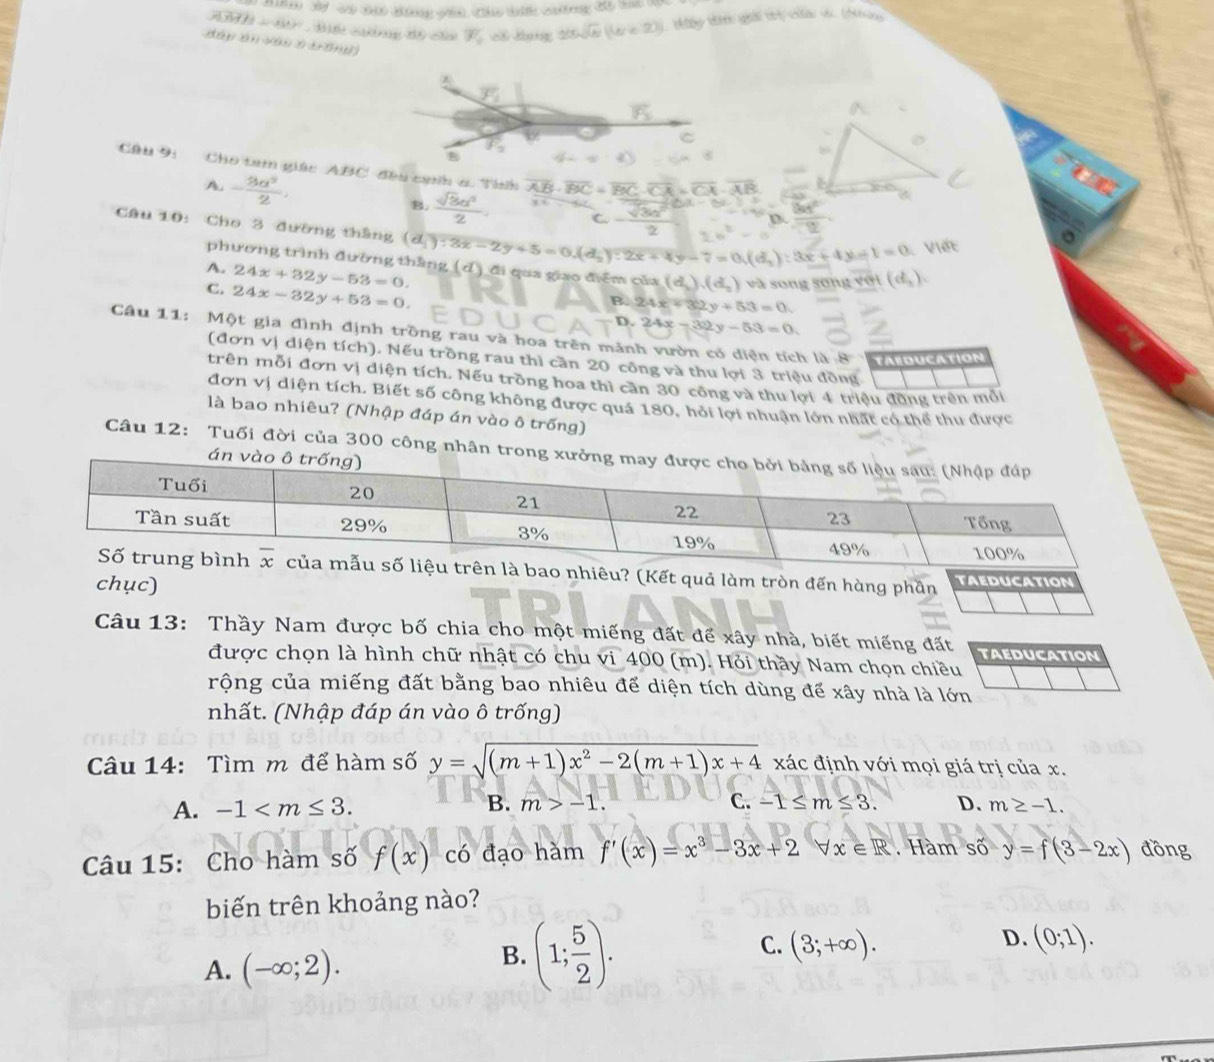 Câu 9: Cho tam giác ABC đều cạnh a. Tính AB⃗.BC⃗ + BC⃗.CA⃗ + CA⃗.AB⃗
A. -3a²/2. B. √3a²/2. C. -√3a²/2 D. 3a²/2.
Câu 10: Cho 3 đường thẳng (d₁): 3x − 2y + 5 = 0,(d₂): 2x + 4y − 7 = 0,(d₃): 3x + 4y − 1 = 0. Viết
phương trình đường thẳng (d) đi qua giao điểm của (d₁),(d₂) và song song với (d₃).
A. 24x + 32y − 53 = 0. B. 24x + 32y + 53 = 0.
C. 24x − 32y + 53 = 0. D. 24x − 32y − 53 = 0.
Câu 11: Một gia đình định trồng rau và hoa trên mảnh vườn có diện tích là 8
(đơn vị diện tích). Nếu trồng rau thì cần 20 công và thu lợi 3 triệu đồng
TAEDUCATION
trên mỗi đơn vị diện tích. Nếu trồng hoa thì cần 30 công và thu lợi 4 triệu đồng trên mỗi
đơn vị diện tích. Biết số công không được quá 180, hỏi lợi nhuận lớn nhất có thể thu được
là bao nhiêu? (Nhập đáp án vào ô trống)
Câu 12: Tuổi đời của 300 công nhân trong xưởng may được cho bởi bảng số liệu sau: (Nhập đáp
án vào ô trống)
Tuổi 20 21 22 23 Tổng
Tần suất 29% 3% 19% 49% 100%
Số trung bình x̄ của mẫu số liệu trên là bao nhiêu? (Kết quả làm tròn đến hàng phần
chục)
TAEDUCATION
TRÍ ANH
Câu 13: Thầy Nam được bố chia cho một miếng đất để xây nhà, biết miếng đất
được chọn là hình chữ nhật có chu vi 400 (m). Hỏi thầy Nam chọn chiều
TAEDUCATION
rộng của miếng đất bằng bao nhiêu để diện tích dùng để xây nhà là lớn
nhất. (Nhập đáp án vào ô trống)
Câu 14: Tìm m để hàm số y = √((m+1)x² − 2(m+1)x + 4) xác định với mọi giá trị của x.
A. −1 < m ≤ 3. B. m > −1. C. −1 ≤ m ≤ 3. D. m ≥ −1.
Câu 15: Cho hàm số f(x) có đạo hàm f'(x) = x³ − 3x + 2 ∀x ∈ ℝ. Hàm số y = f(3 − 2x) đồng
biến trên khoảng nào?
A. (−∞;2). B. (1;5/2). C. (3;+∞). D. (0;1).